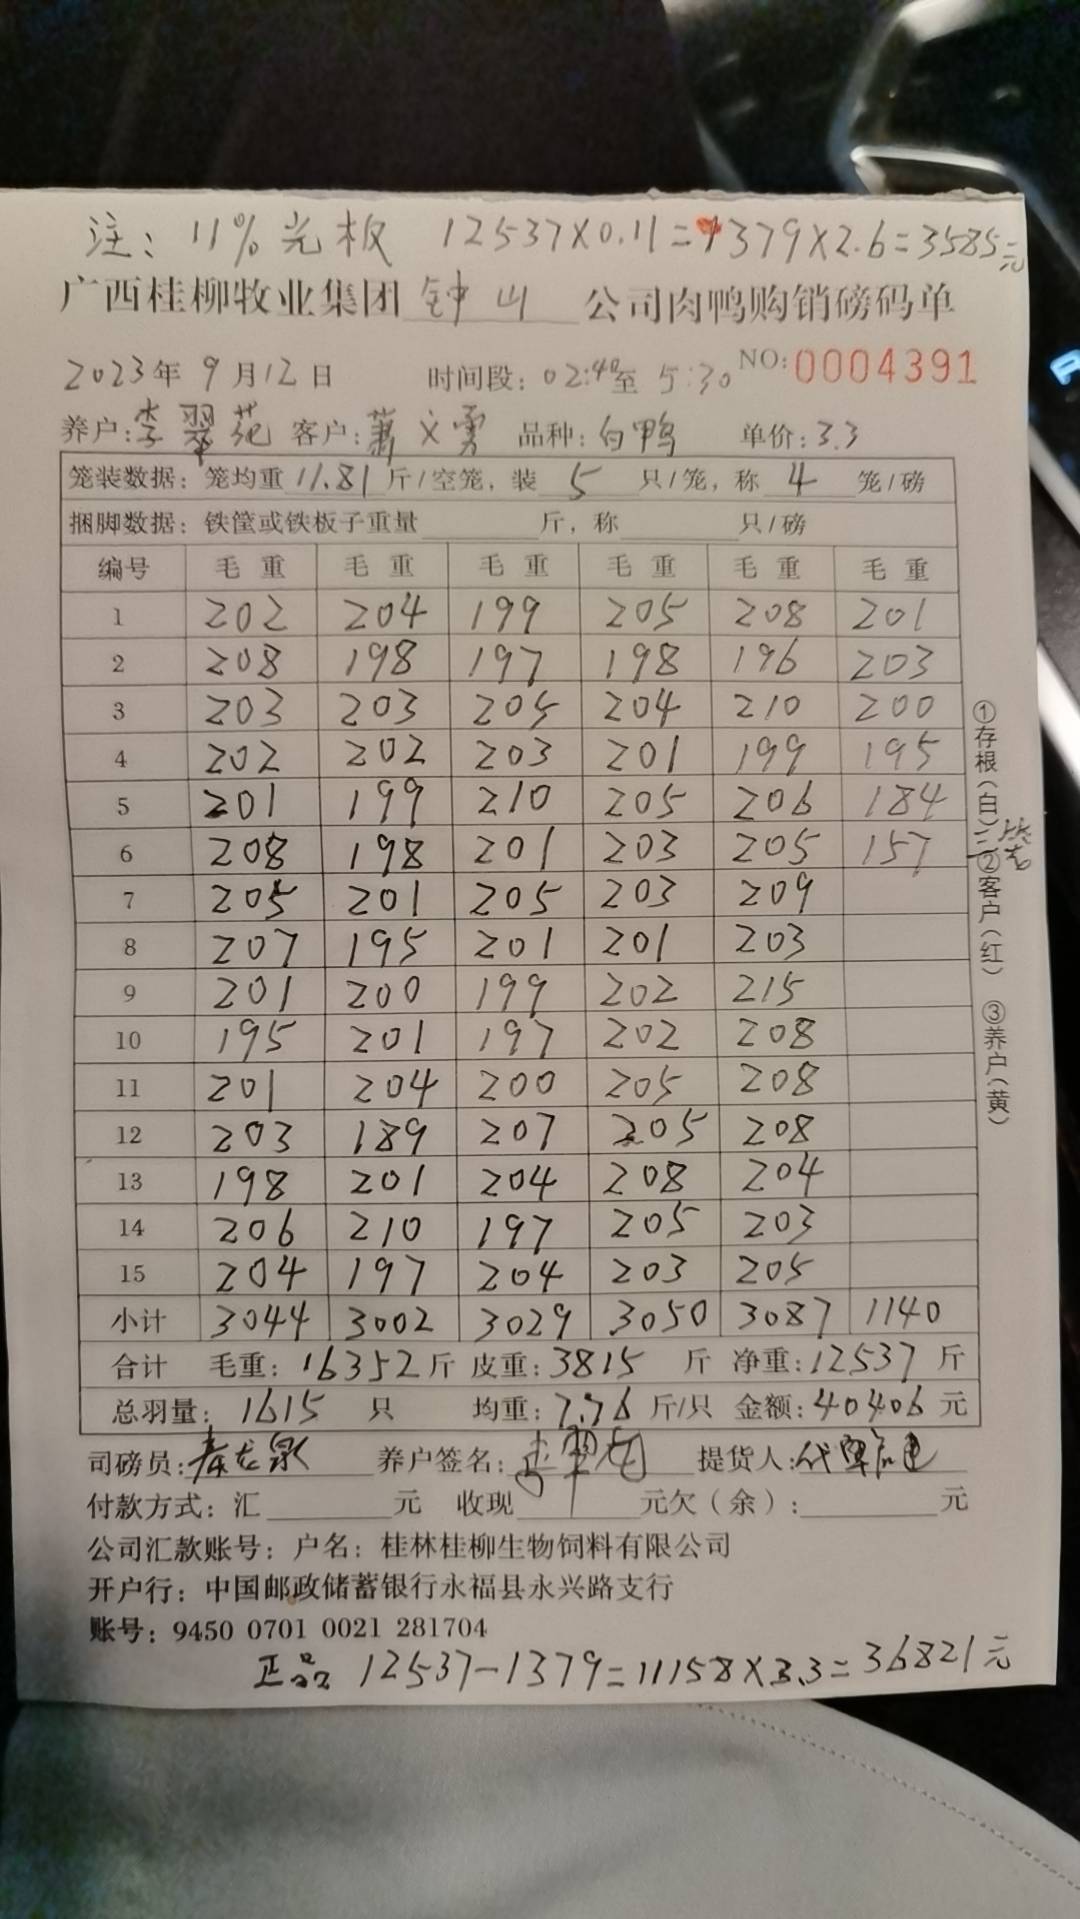 注: 11%光板 12537×0.11=1379×2.6=3585元
广西桂柳牧业集团 钟山 公司肉鸭购销磅码单
2023年 9月12日 时间段: 02:40至 5:30 NO: 0004391
养户: 李翠苑 客户: 萧文勇 品种: 白鸭 单价: 3.3
笼装数据: 笼均重 11.81 斤/空笼, 装 5 只/笼, 称 4 笼/磅
捆脚数据: 铁筐或铁板子重量 斤, 称 只/磅
编号 毛重 毛重 毛重 毛重 毛重 毛重
1 202 204 199 205 208 201
2 208 198 197 198 196 203
3 203 203 205 204 210 200
4 202 202 203 201 199 195
5 201 199 210 205 206 184
6 208 198 201 203 205 157 三笼
7 205 201 205 203 209
8 207 195 201 201 203
9 201 200 199 202 215
10 195 201 197 202 208
11 201 204 200 205 208
12 203 189 207 205 208
13 198 201 204 208 204
14 206 210 197 205 203
15 204 197 204 203 205
小计 3044 3002 3029 3050 3087 1140
合计 毛重: 16352斤 皮重: 3815 斤 净重: 12537 斤
总羽量: 1615 只 均重: 7.76 斤/只 金额: 40406 元
司磅员: 养户签名: 提货人:
付款方式: 汇 元 收现 元欠(余): 元
公司汇款账号: 户名: 桂林桂柳生物饲料有限公司
开户行: 中国邮政储蓄银行永福县永兴路支行
账号: 9450 0701 0021 281704
正品 12537-1379=11158×3.3=36821元
①存根(白) ②客户(红) ③养户(黄)